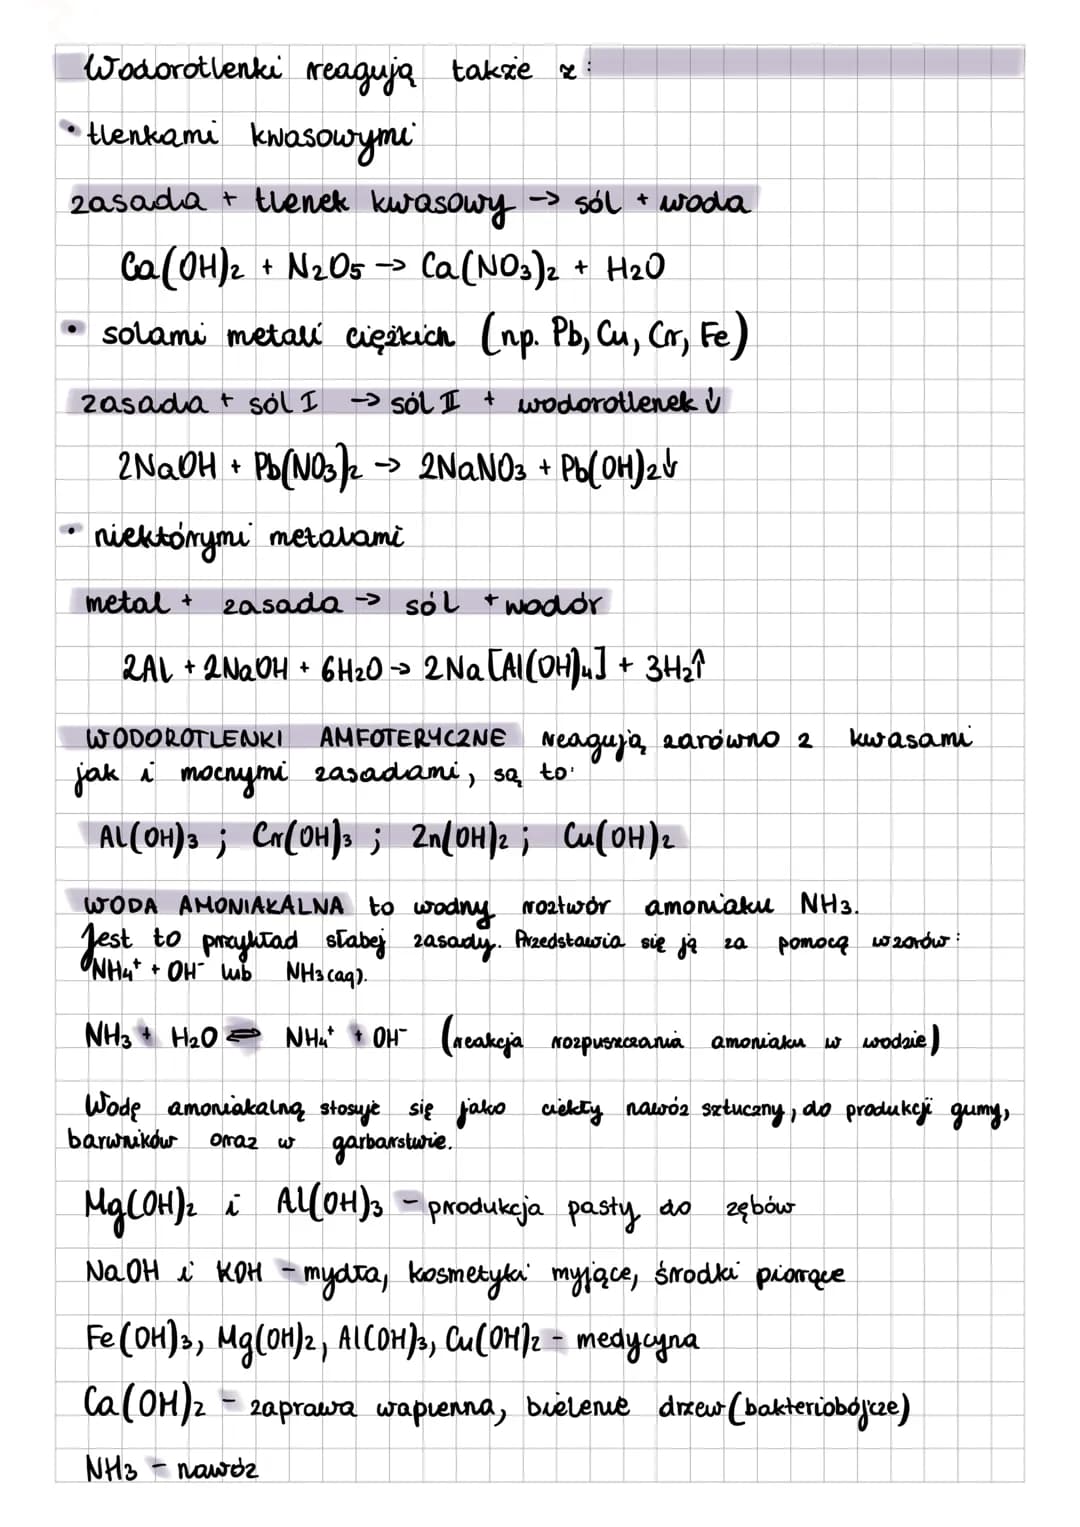 Wodorotlenki reagują także z:
• tlenkami kwasowymi
zasada + tlenek kwasowy -> sól + woda
Ca(OH)2 + N2O5 -> Ca(NO3)2 + H2O
• solami metali ciężkich (np. Pb, Cu, Cr, Fe)
zasada + sól I -> sól II + wodorotlenek ↓
2NaOH + Pb(NO3)2 -> 2NaNO3 + Pb(OH)2↓
• niektórymi metalami
metal + zasada -> sól + wodór
2Al + 2NaOH + 6H2O -> 2Na[Al(OH)4] + 3H2↑
WODOROTLENKI AMFOTERYCZNE reagują zarówno z kwasami
jak i mocnymi zasadami, są to:
Al(OH)3 ; Cr(OH)3 ; Zn(OH)2 ; Cu(OH)2
WODA AMONIAKALNA to wodny roztwór amoniaku NH3.
Jest to przykład słabej zasady. Przedstawia się ją za pomocą wzorów:
NH4+ + OH- lub NH3(aq).
NH3 + H2O ⇌ NH4+ + OH- (reakcja rozpuszczania amoniaku w wodzie)
Wodę amoniakalną stosuje się jako ciekły nawóz sztuczny, do produkcji gumy,
barwników oraz w garbarstwie.
Mg(OH)2 i Al(OH)3 - produkcja pasty do zębów
NaOH i KOH - mydła, kosmetyki myjące, środki piorące
Fe(OH)3, Mg(OH)2, Al(OH)3, Cu(OH)2 - medycyna
Ca(OH)2 - zaprawa wapienna, bielenie drzew (bakteriobójcze)
NH3 - nawóz